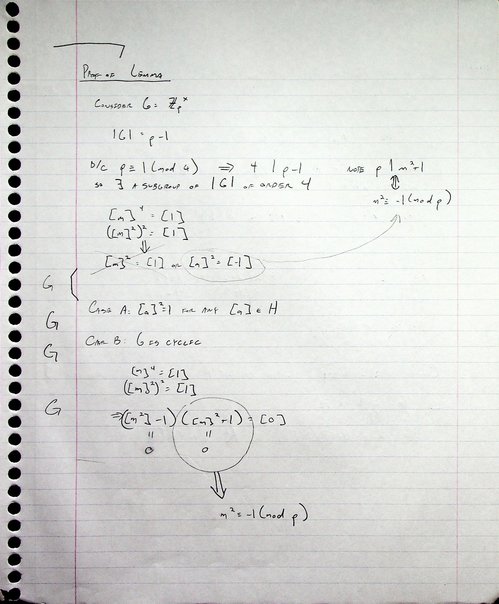 Proof of Lemma
Consider G = ℤp^×
|G| = p-1
B/c p ≡ 1 (mod 4) ⟹ 4 | p-1
so ∃ a subgroup of |G| of order 4
Note p | m²+1
⇕
m² ≡ -1 (mod p)
[m]⁴ = [1]
([m]²)² = [1]
⇓
[m]² = [1] or [m]² = [-1]
G
Case A: [m]² = 1 for any [m] ∈ H
G
Case B: G is cyclic
G
[m]⁴ = [1]
([m]²)² = [1]
G
⟹ ([m²]-1)([m]²+1) = [0]
|| ||
0 0
⇓
m² ≡ -1 (mod p)